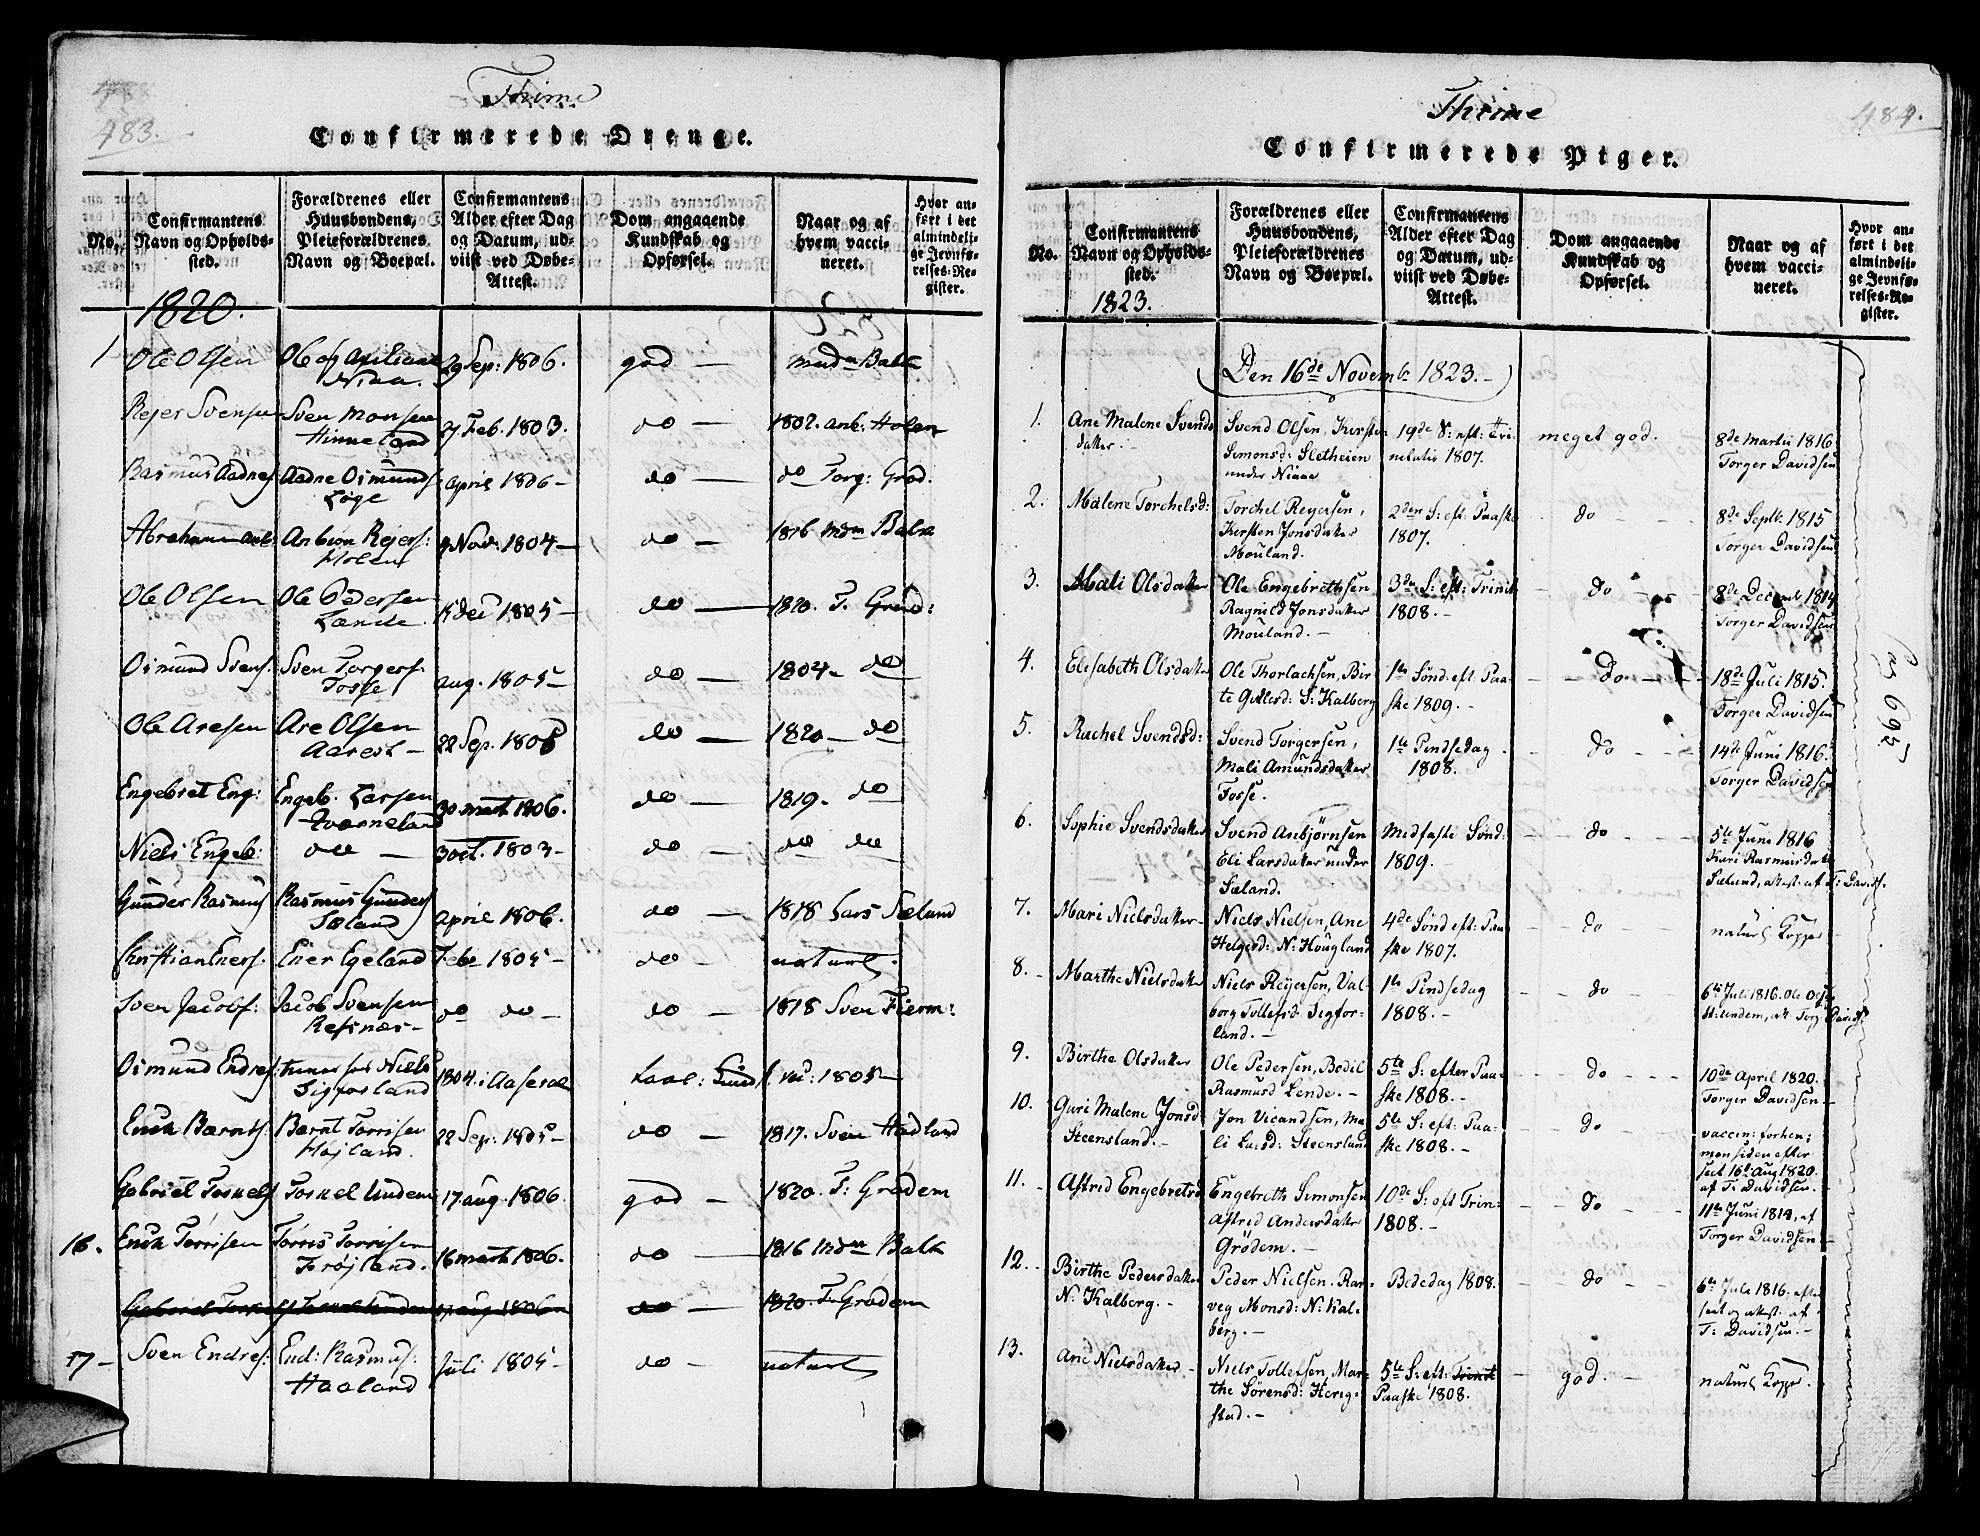 483.
Thime
Confirmerede Drenge.
No.
Confirmantens Navn og Opholds-sted.
Forældrenes eller Huusbondens, Pleieforældrenes Navn og Boepæl.
Confirmantens Alder efter Dag og Datum, ud-viist ved Døbe-Attest.
Dom angaaende Kundskab og Opførsel.
Naar og af hvem vacci-neret.
Hvor an-ført i det almindeli-ge Jevnfø-relses-Re-gister.
1820.
1 Ole Olsen Ole Niaa. 29 Sep: 1806. god — Balk
Rejer Svensen Sven Monsen Hinneland 27 Feb. 1803. do — 1802. anb: Holen
Rasmus Aadnes Aadne Osmunds: Løge april 1806 — do — do Torg: Grød:
Abraham Anb: Anbiøn Rejers: Holen 9 Nov: 1804 — do — 1816 Balk
Ole Olsen Ole Pedersen Lænde. 15 dec 1805 — do — 1820. T. Grød:
Osmund Svens: Sven Torgers: Fosse aug. 1805 — do — 1804 — do
Ole Aresen Are Olsen Aarest — 22 Sep. 1805 do — 1820 — do
Engebret Eng: Engeb. Larsen Qværneland 30 mart 1806. do — 1819. do
Niels Engeb: do — 3 oct. 1803 — do — do do
Gunder Rasmus Rasmus Gunders Sæland april 1806. do — 1818 Lars Sælund
Christian Eners: Ener Egeland Febr 1805 — do — naturl.
Sven Jacobs: Jacob Svensen Refsnæs — do do — do — 1818 Sven Fierm:
Osmund Endres: Niels Sigforsland 1804. i Aaseral Laal: Kund 1805 —
Erich Bærnts: Bærnt Torrisen Højland. 22 Sep: 1805 — do — 1817. Sven Hadland
Gabriel Torkels Torkel Undem 17 aug. 1806. god — 1820. T: Grødem
16. Erich Tørrisen Tørris Torrisen Frøjland. 16 mart 1806. do — 1816 Balk
Gabriel Torkels Torkel Undem 17 aug 1806 do — 1820. T. Grødem
17 — Sven Endres: End: Rasmus: Haaland Juli 1805 — do — naturl
484.
Thime
Confirmerede Piger.
No.
Confirmantens Navn og Opholds-sted.
Forældrenes eller Huusbondens, Pleieforældrenes Navn og Boepæl.
Confirmantens Alder efter Dag og Datum, ud-viist ved Døbe-Attest.
Dom angaaende Kundskab og Opførsel.
Naar og af hvem vacci-neret.
Hvor an-ført i det almindeli-ge Jevnfø-relses-Re-gister.
1823.
Den 16de Novembr 1823. —
1. Ane Malene Svends datter. Svend Olsen, Kirsten Simonsd: Sletheien under Niaae 19de S: eft: Tri-nitatis 1807. meget god. 8de Martii 1816 Torger Davidsen
2. Malene Torchelsd: Torchel Reyersen, Kirsten Jonsdatter Mouland. 2den S: eft: Paaske 1807. do 8de Septbr: 1815 Torger Davidsen
3. Mali Olsdatter Ole Engebrethsen Ragnild Jonsdatter Mouland. — 3de S: eft: Trinit 1808. — do 8de Decemb 1814 Torger Davidsen
4. Elisabeth Olsdatter Ole Thorlachsen, Bir-te Gitlesd: S: Kalberg 1te Sønd: eft Paa-ske 1809. — do 18de Juli 1815. Torger Davidsen
5. Rachel Svendsd: Svend Torgersen, Mali Amundsdatter Fosse. 1te Pindsedag 1808. do 14de Juni 1816. Torger Davidsen
6. Sophie Svendsdatter Svend Anbjørnsen Eli Larsdatter under Sæland. Midfaste Sønd: 1809. — do 5te Juni 1816 Kari Rasmusdatt Sælund, attest. af T: Davids.
7. Mari Nielsdatter — Niels Nielsen, Ane Helgesd: N: Hougland 4de Sønd eft: Paa-ske 1807. do naturl Kopper
8. — Marthe Nielsdatter Niels Reyersen, Val-borg Tollefsd: Sigfor-land. — 1te Pindsedag 1808. — do 6te Juli 1816. Ole Ols: att. Torg: Davids:
9. Birthe Olsdatter Ole Pedersen, Bodil Rasmusd Lende. — 5te S: efter Paa-ske 1808. — do 10de April 1820. Torger Davidsen —
10. Guri Malene Jonsd: Steensland. — Jon Vicandsen, Ma-li Larsd: Steensland 5te S: eft: Paa-ske 1808. — do vaccin: forhen; men siden efter seet 16de Aug 1820. af T: Davidsen. —
11. Astrid Engebretsd Engebreth Simonsen Astrid Andersdatter Grödem. — 10de S: eft Trin: 1808. — do 11te Juni 1814, af Torger Davidsen. —
12. Birthe Pedersdatter N: Kalberg. — Peder Nielsen. Rar-veg Monsd: N: Kal-berg. — Bededag 1808. do 6te Juli 1816. efter seet og attest: af T: Davidsen. —
13. Ane Nielsdatter — Niels Tollefsen, Mar-the Sörensd: Herig-stad. — 5te S: eft: Trinit Paaske 1808. god. — naturl Kopper
Pag 695